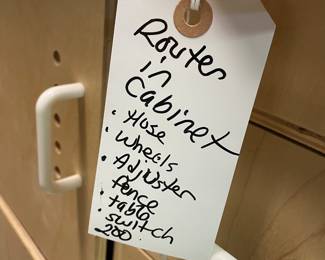 Router
in
Cabinet
• Hose
• Wheels
• Adjuster
fence
• table
• switch
200